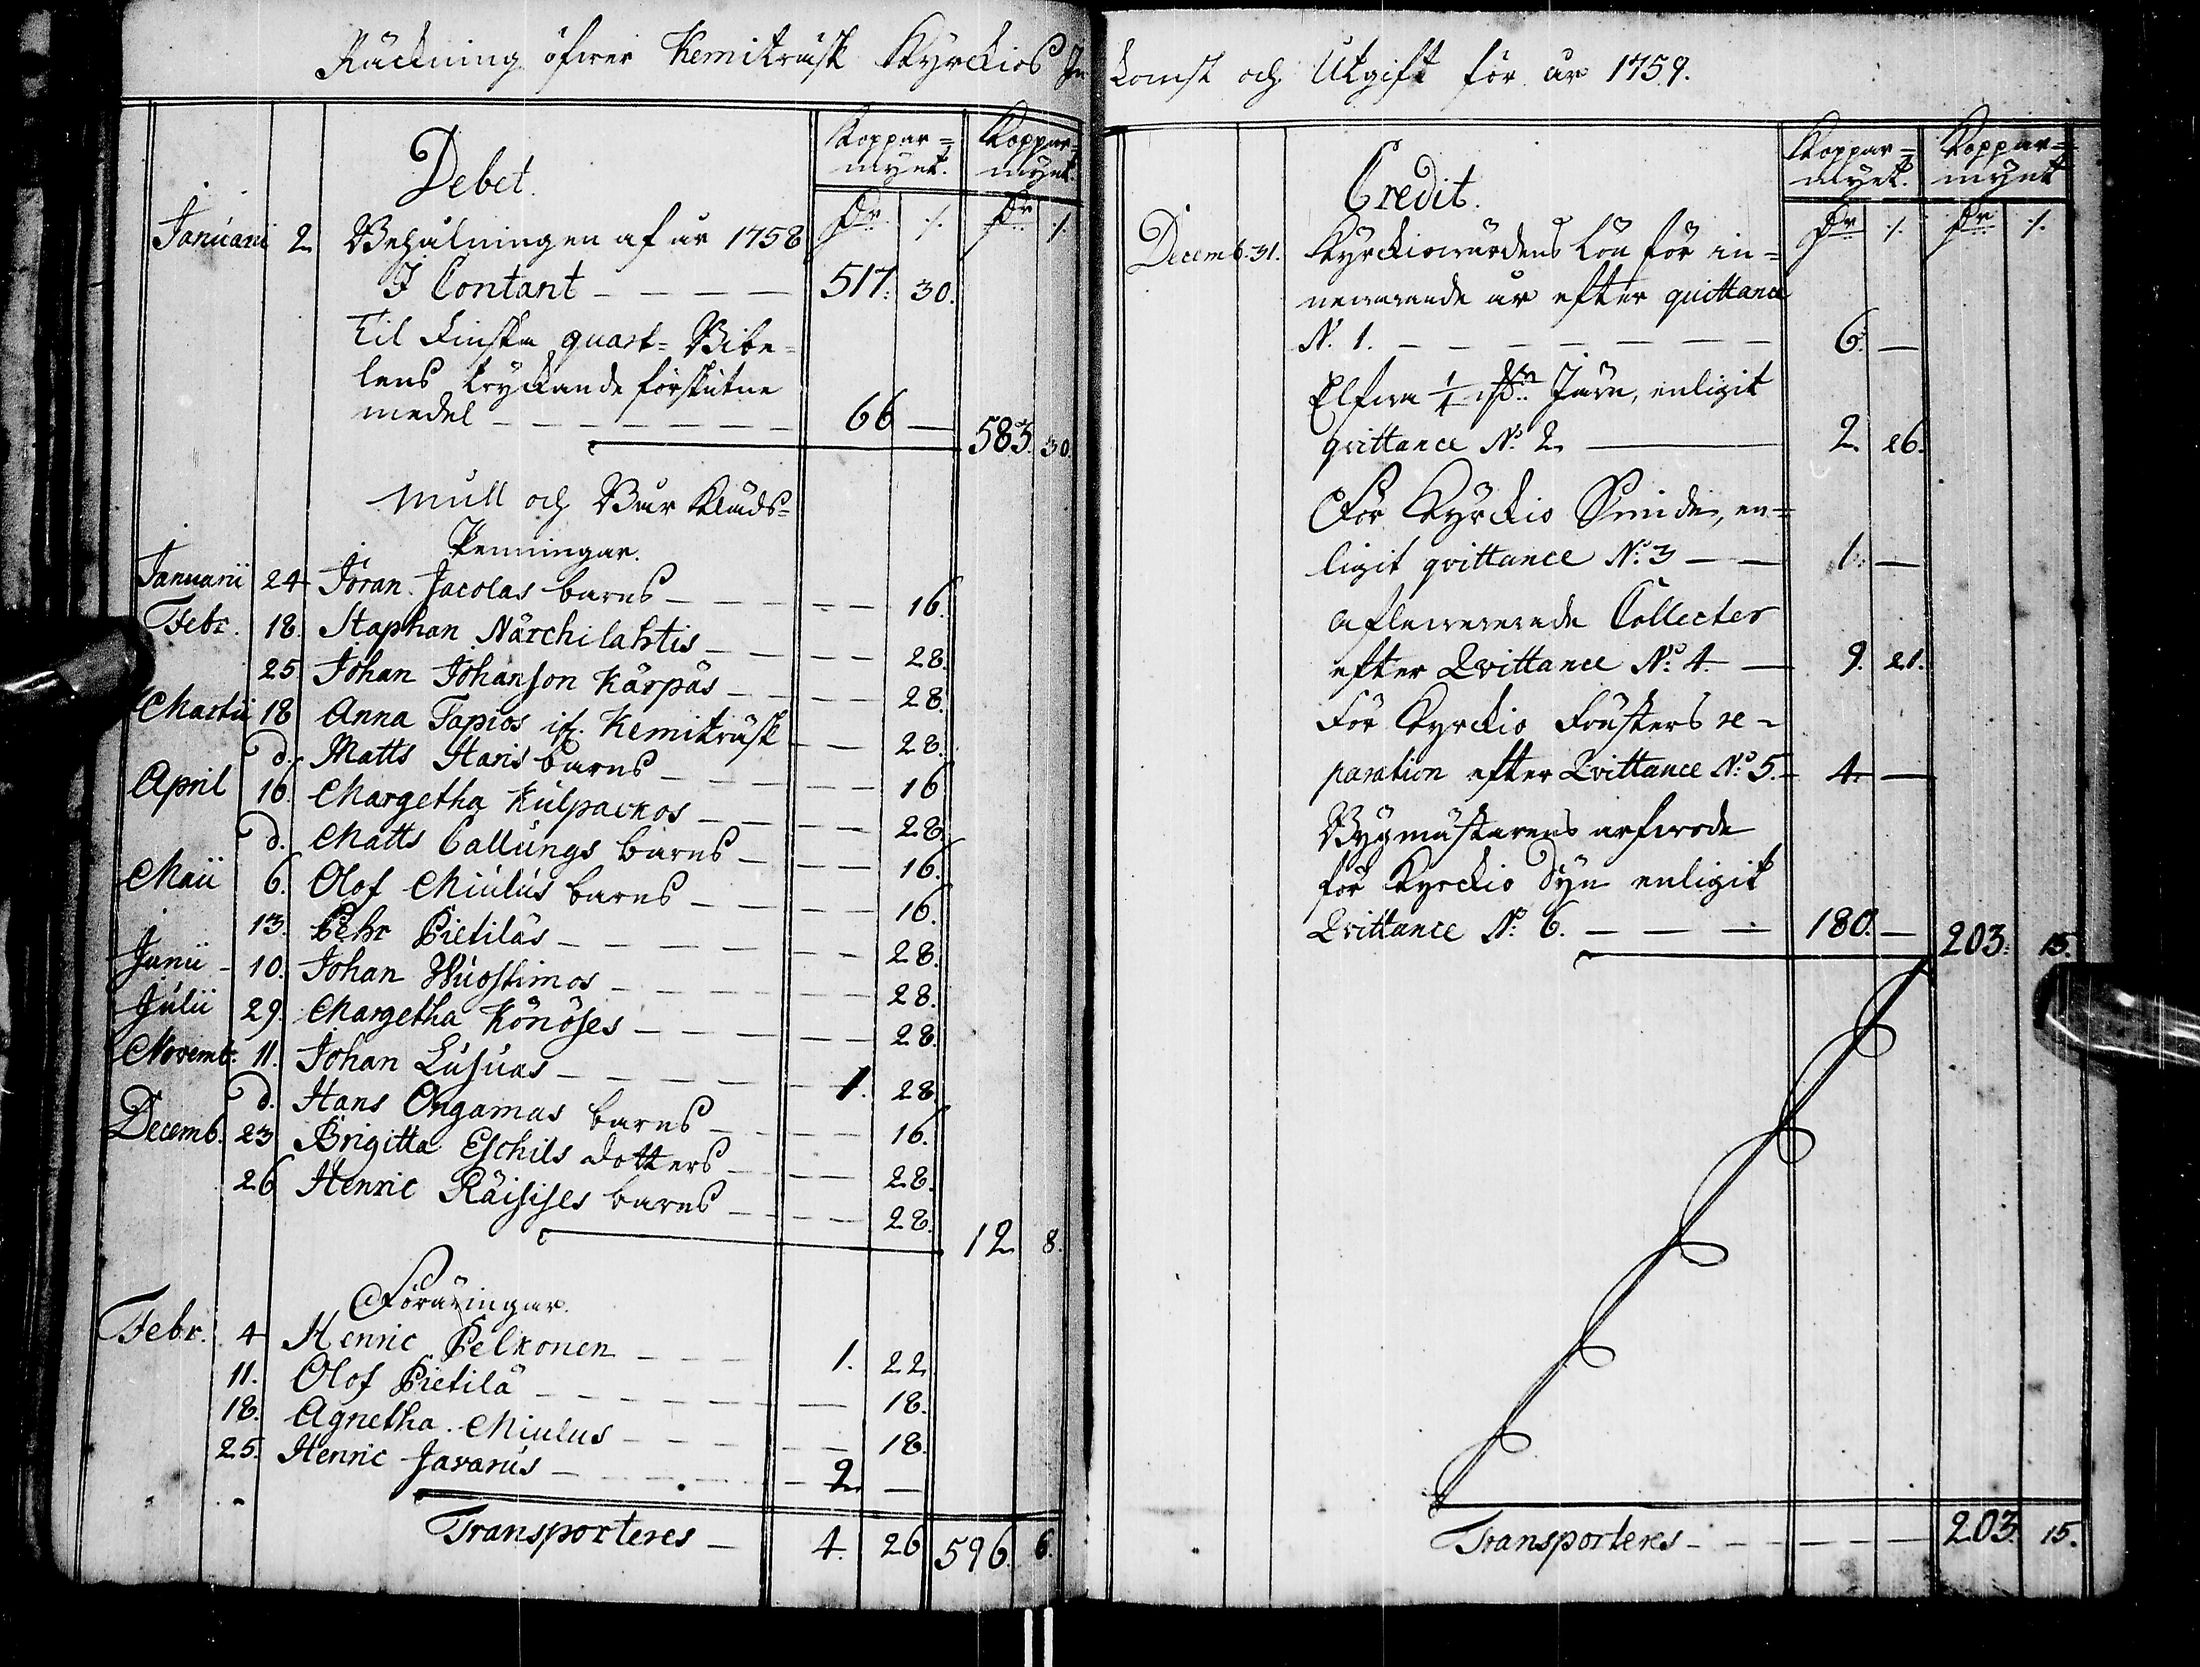 Räckning öfwer Kemiträsk Kyrckios In
komst och Utgift för år 1759.
Debet.
Koppar=
mynt.
Koppar=
mynt.
Dr. /.
Dr /.
Januarii 2 Behålningen af år 1758
I Contant - - - - 517. 30.
Til Finska quart-Bibe-
lens tryckande förskutne
medel - - - - - - - 66 — 583. 30.
Mull och Bår Kläds=
Penningar.
Januarii 24 Jöran Jacolas barns - - - - 16.
Febr. 18. Staphan Närchilahtis - - - - 28.
25. Johan Johanson Kärpäs - - - - 28.
Martii 18 Anna Tapios if. Kemiträsk - - 28.
d. Matts Haris barns - - - - 16
April 16. Margetha Kulpackos - - - - 28
d. Matts Callungs barns - - - - 16.
Maii 6. Olof Miulus barns - - - - 16.
13. Pehr Pietiläs - - - - - 28.
Junii - 10. Johan Wuostimos - - - - - 28.
Julii 29. Margetha Könöses - - - - - 28.
Novemb. 11. Johan Lusuas - - - - - 1. 28.
d. Hans Ongamus barns - - - - 16.
Decemb. 23 Brigitta Eschils dotters - - - 28.
26 Henric Räisises barns - - - - 28. 12 8.
Föräringar.
Febr. 4 Henric Pelkonen - - - 1. 22
11. Olof Pietilä - - - - - 18.
18. Agnetha Miulus - - - - - 18.
25. Henric Javarus - - - - - 2. —
Transporteres - 4. 26 596. 6.
Credit.
Koppar=
mynt.
Koppar=
mynt
Dr /.
Dr /.
Decemb. 31. Kyrckiowärdens Lön för in=
newarande år efter quittance
N. 1. - - - - - - - 6. —
Elfwa 1/4 Järn, enligit
qvittance No 2 — 2. 26.
För Kyrckio Smide, en=
ligit qvittance No 3 - - 1. —
Aflewererade Collecter
efter Qvittance No 4. — 9. 21.
För Kyrckio Fönsters re-
paration efter Qvittance No 5. - 4. —
Bygmästarens arfwode
för Kyrckio Syn enligit
Qvittance No 6. - - - 180. — 203. 15.
Transporteres - - - - - 203. 15.